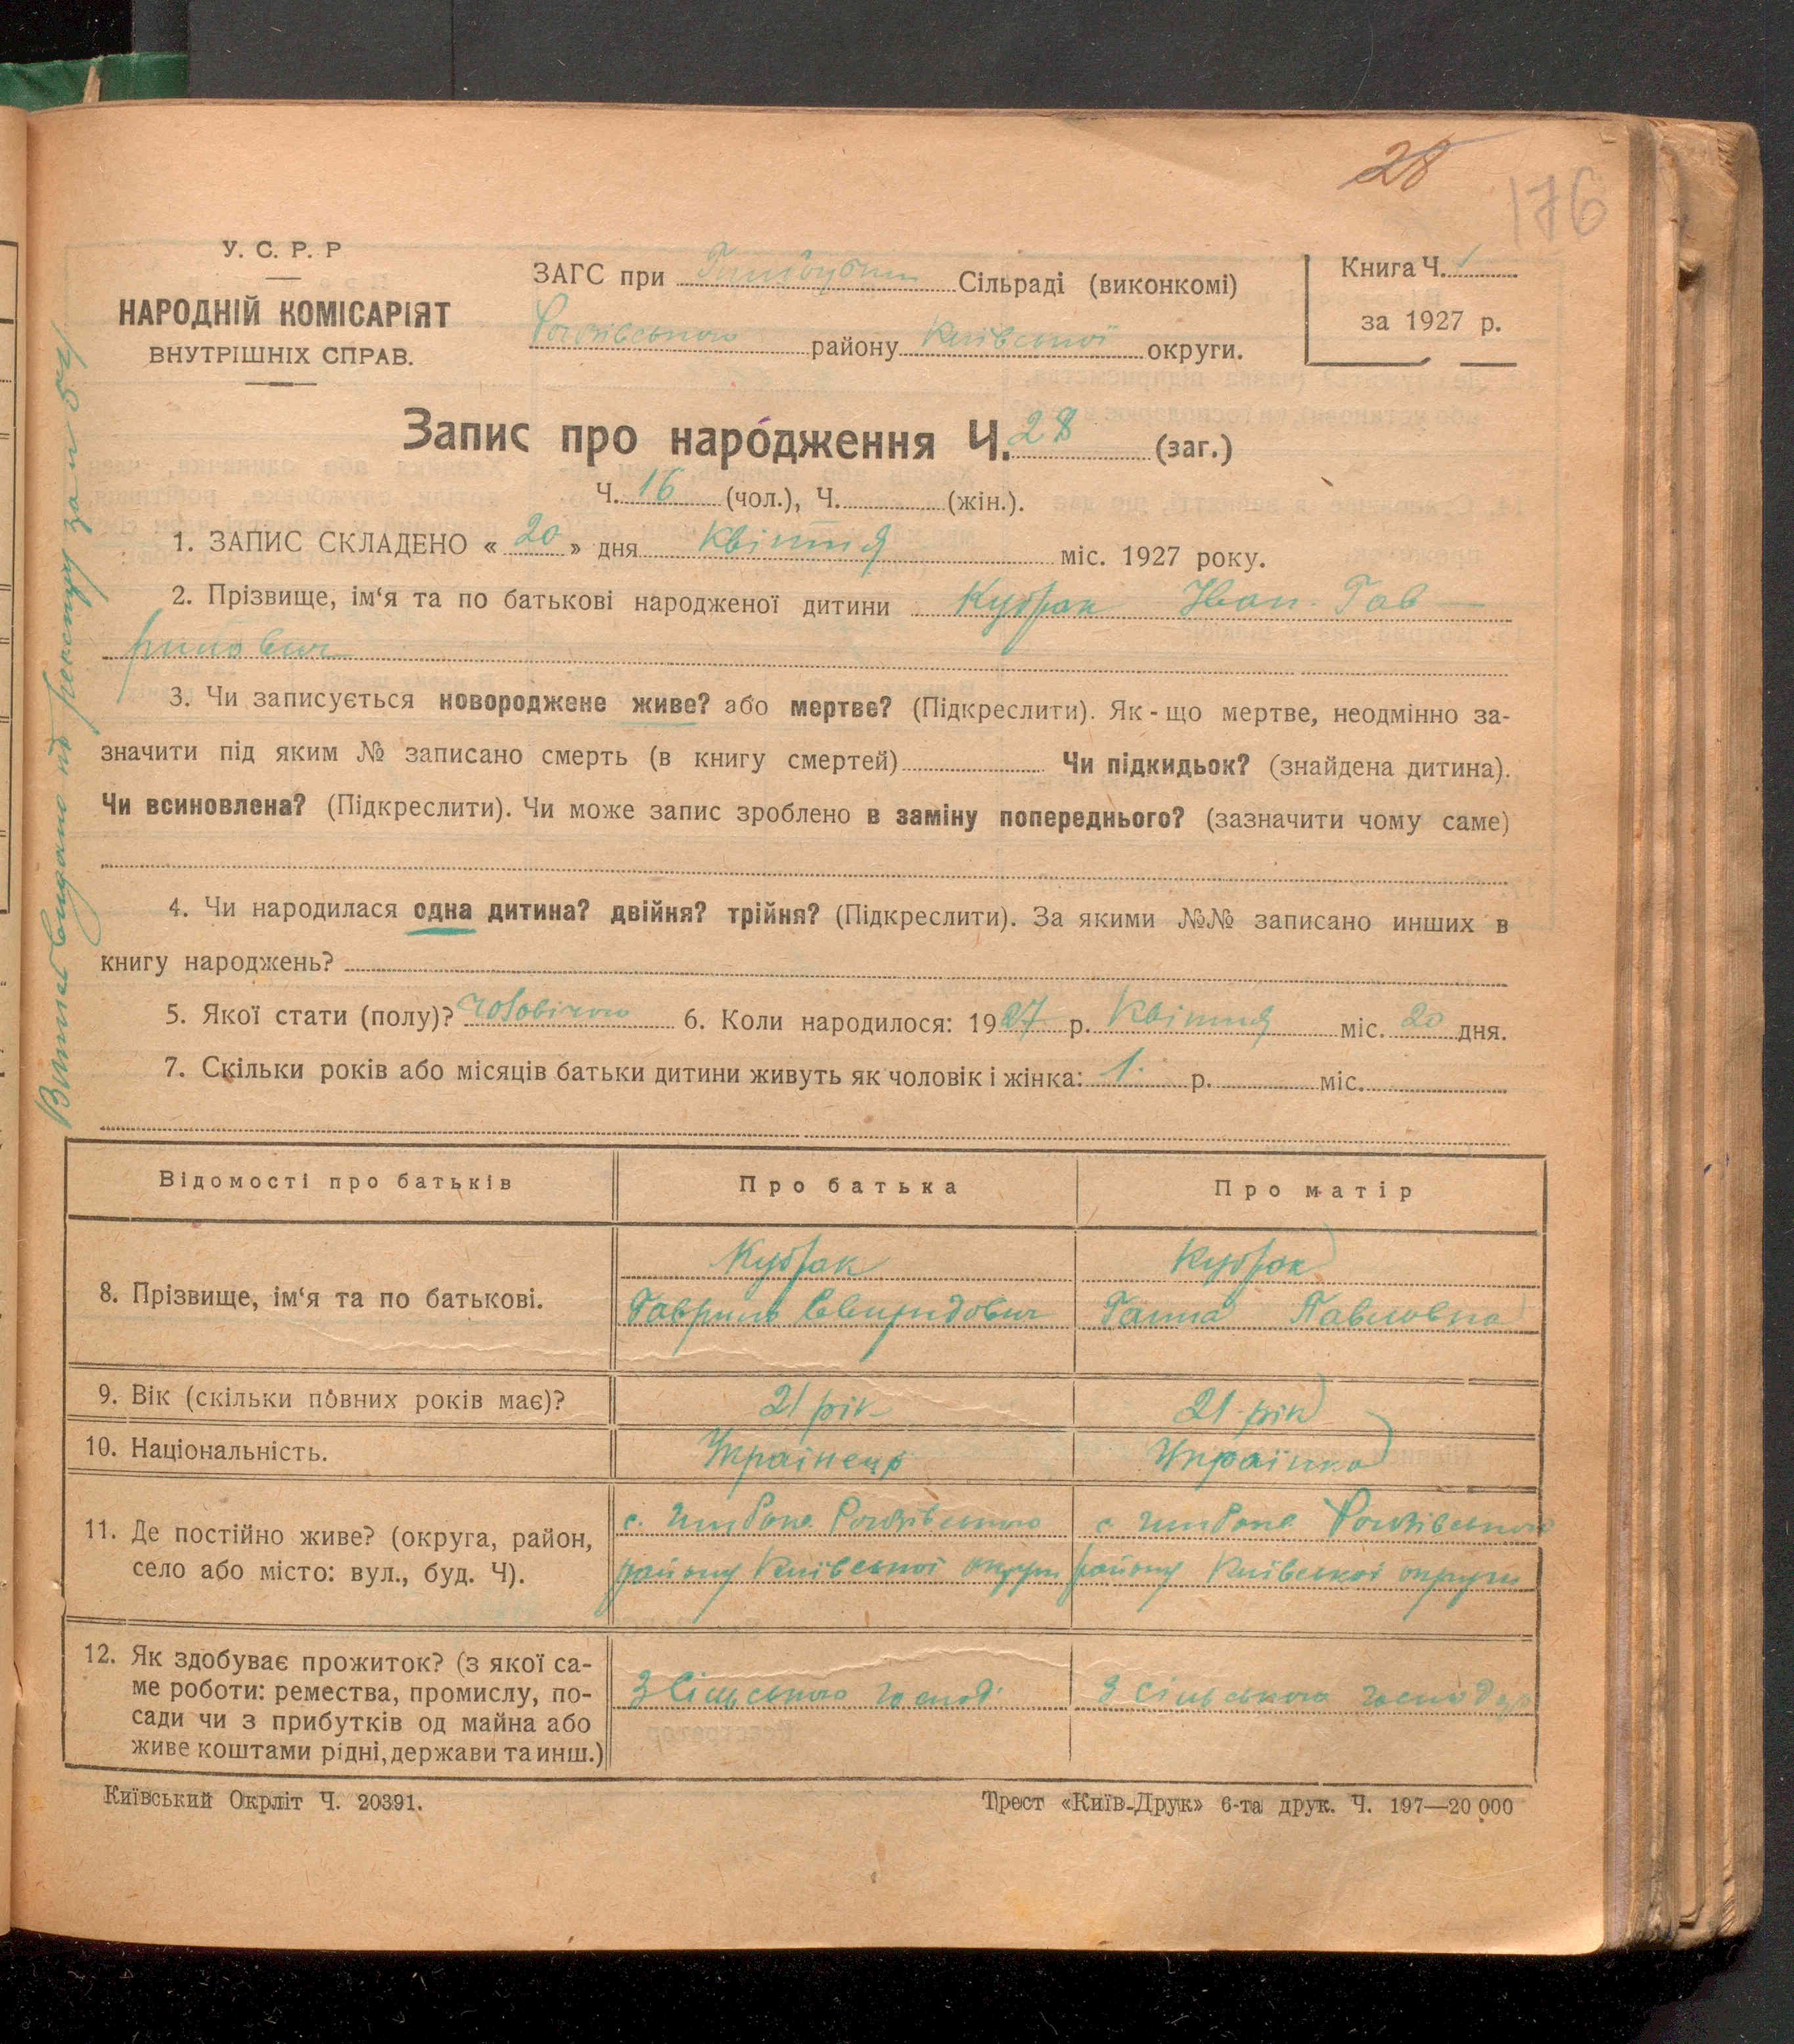 28
176
У. С. Р. Р
НАРОДНІЙ КОМІСАРІЯТ
ВНУТРІШНІХ СПРАВ.
ЗАГС при Сільраді (виконкомі)
району Київської округи.
Книга Ч. 1
за 1927 р.
Запис про народження Ч. 28 (заг.)
Ч. 16 (чол.), Ч. (жін.).
1. ЗАПИС СКЛАДЕНО « 20 » дня Квітня міс. 1927 року.
2. Прізвище, ім‘я та по батькові народженої дитини Кубрак Іван Гав
рилович
3. Чи записується новороджене живе? або мертве? (Підкреслити). Як-що мертве, неодмінно за-
значити під яким № записано смерть (в книгу смертей) Чи підкидьок? (знайдена дитина).
Чи всиновлена? (Підкреслити). Чи може запис зроблено в заміну попереднього? (зазначити чому саме)
4. Чи народилася одна дитина? двійня? трійня? (Підкреслити). За якими №№ записано инших в
книгу народжень?
5. Якої стати (полу)? чоловічої 6. Коли народилося: 1927 р. Квітня міс. 20 дня.
7. Скільки років або місяців батьки дитини живуть як чоловік і жінка: 1 р. міс.
Відомості про батьків Про батька Про матір
8. Прізвище, ім‘я та по батькові.
Кубрак Кубрак
Гаврило Свиридович Ганна Павловна
9. Вік (скільки повних років має)? 21 рік 21 рік
10. Національність. Українець Українка
11. Де постійно живе? (округа, район,
село або місто: вул., буд. Ч).
с. с.
району Київської округи району Київської округи
12. Як здобуває прожиток? (з якої са-
ме роботи: ремества, промислу, по-
сади чи з прибутків од майна або
живе коштами рідні, держави та инш.)
З сільського господ. З сільського господар
Київський Окрліт Ч. 20391.
Трест «Київ-Друк» 6-та друк. Ч. 197—20 000
Витяг видано по реєстру за №